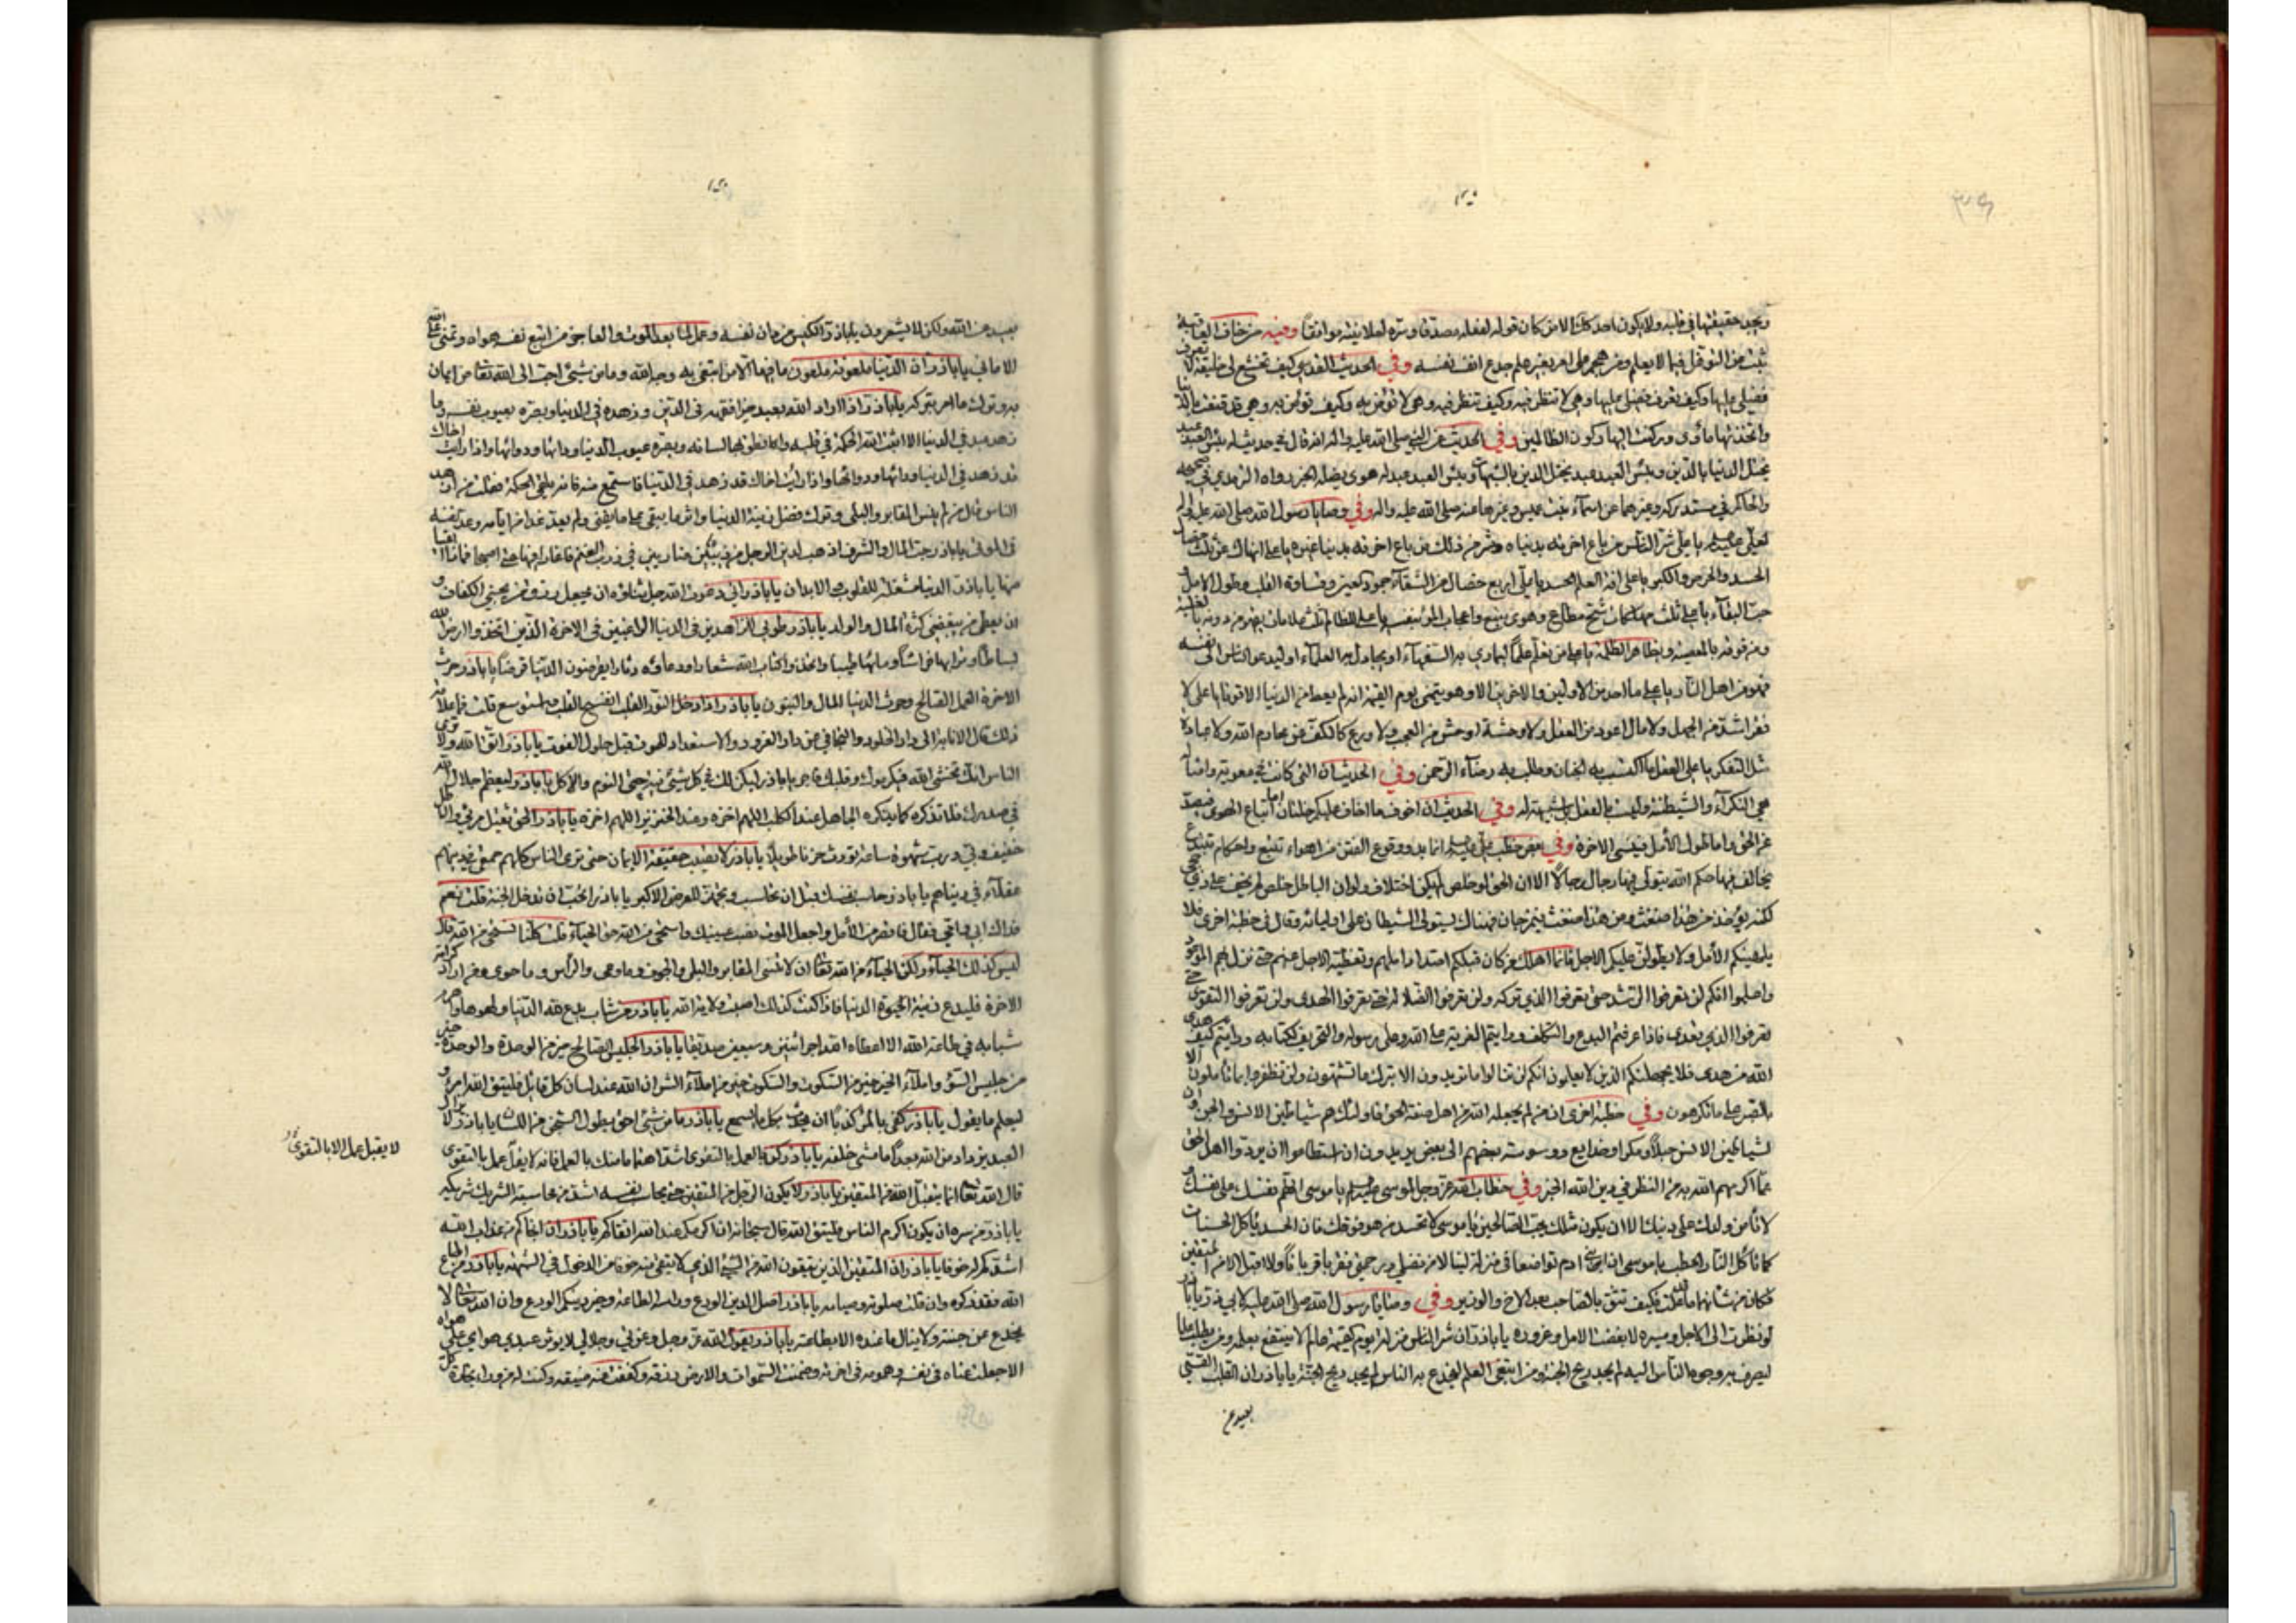 ويجد حقيقتها في قلبه ولا يكون احد كذلك الا من كان قوله لفعله مصدقا وسره لعلانيته موافقا وفيه من خاف العاقبة
تثبت عن التوغل فيما لا يعلم ومن هجم على امر بغير علم جدع انف نفسه وفي الحديث القدسي كيف تخشع لي خليقة لا تعرف
فضلي عليها وكيف تعرف فضلي عليها وهي لا تنظر فيه وكيف تنظر فيه وهي لا تؤمن به وكيف تؤمن به وهي قد قنعت بالدنيا
واتخذتها مأوى وركنت اليها ركون الظالمين وفي الحديث عن النبي صلى الله عليه واله انه قال في حديث له بئس العبد عبد
يختل الدنيا بالدين وبئس العبد عبد يختل الدين بالشبهات وبئس العبد عبد له هوى يضله الخبر رواه الترمذي في صحيحه
والحاكم في مستدركه وغيرهما عن اسماء بنت عميس وغيرها عنه صلى الله عليه واله وفي وصايا رسول الله صلى الله عليه واله
لعلي يا علي شر الناس من باع اخرته بدنياه وشر من ذلك من باع اخرته بدنيا غيره يا علي انهاك عن ثلث خصال
الحسد والحرص والكبر يا علي افة العلم الحسد يا علي اربع خصال من الشقاء جمود العين وقساوة القلب وطول الامل و
حب البقاء يا علي ثلث مهلكات شح مطاع وهوى متبع واعجاب المرء بنفسه يا علي للظالم ثلث علامات يقهر من دونه بالغلبة
ومن فوقه بالمعصية ويظاهر الظلمة يا علي من تعلم علما ليماري به السفهاء او يجادل به العلماء او ليدعو الناس الى نفسه
فهو من اهل النار يا علي ما احد من الاولين والاخرين الا وهو يتمنى يوم القيمة انه لم يعط من الدنيا الا قوتا يا علي لا
فقر اشد من الجهل ولا مال اعود من العقل ولا وحشة اوحش من العجب ولا ورع كالكف عن محارم الله ولا عبادة
مثل التفكر يا علي العقل ما اكتسب به الجنان وطلب به رضاء الرحمن وفي الحديث ان التي كانت في معوية وامثاله
هي النكراء والشيطنة وليست بالعقل بل شبيهة له وفي الحديث ان اخوف ما اخاف عليكم خلتان اما اتباع الهوى فيصد
عن الحق واما طول الامل فينسي الاخرة وفي بعض خطب علي انما بدو وقوع الفتن من اهواء تتبع واحكام تبتدع
يخالف فيها حكم الله يتولى فيها رجال رجالا الا ان الحق لو خلص لم يكن اختلاف ولو ان الباطل خلص لم يخف على ذي حجى
لكنه يؤخذ من هذا ضغث ومن هذا ضغث فيمزجان فهنالك يستولي الشيطان على اوليائه وقال في خطبة اخرى فلا
يلهينكم الامل ولا يطولن عليكم الاجل فانما اهلك من كان قبلكم امتداد املهم وتغطية الاجل عنهم حتى نزل بهم الموعود
واعلموا انكم لن تعرفوا الرشد حتى تعرفوا الذي تركه ولن تعرفوا الضلالة حتى تعرفوا الهدى ولن تعرفوا التقوى حتى
تعرفوا الذي تعدى فاذا عرفتم البدع والتكلف ورايتم الفرية على الله وعلى رسوله والتحريف لكتابه ورايتم كيف هدى
الله من هدى فلا يجهلنكم الذين لا يعلمون انكم لن تنالوا ما تريدون الا بترك ما تشتهون ولن تظفروا بما تأملون الا
بالصبر على ما تكرهون وفي خطبة اخرى ان من لم يجعله الله من اهل صفة الحق فاولئك هم شياطين الانس والجن وان
لشياطين الانس حيلا ومكرا وخدايع ووسوسة بعضهم الى بعض يريدون ان استطاعوا ان يردوا اهل الحق
عما اكرمهم الله به من النظر في دين الله الخبر وفي خطاب الله عز وجل لموسى يا موسى اتهم نفسك على نفسك و
لا تأمن ولدك على دينك الا ان يكون مثلك يحب الصالحين يا موسى لا تحسد من هو فوقك فان الحسد يأكل الحسنات
كما تأكل النار الحطب يا موسى ان ابني ادم تواضعا في منزلة لينالا من فضلي ورحمتي فقربا قربانا ولا اقبل الا من المتقين
فكان من شأنهما ما علمت فكيف تثق بالصاحب بعد الاخ والوزير وفي وصايا رسول الله صلى الله عليه لابي ذر يا باذر
لو نظرت الى الاجل ومسيره لابغضت الامل وغروره يا باذر ان شر الناس منزلة يوم القيمة عالم لا ينتفع بعلمه ومن طلب علما
ليصرف به وجوه الناس اليه لم يجد ريح الجنة ومن ابتغى العلم ليخدع به الناس لم يجد ريح الجنة يا باذر ان القلب القسي
بعيد من
بعيد من الله ولكن لا يشعرون يا باذر الكيس من دان نفسه وعمل لما بعد الموت والعاجز من اتبع نفسه هواه وتمنى على الله
الاماني يا باذر ان الدنيا ملعونة ملعون ما فيها الا من ابتغى به وجه الله وما من شيء احب الى الله تعالى من ايمان
به وترك ما امر بتركه يا باذر اذا اراد الله بعبد خيرا فقهه في الدين وزهده في الدنيا وبصره بعيوب نفسه وما
زهد عبد في الدنيا الا اثبت الله الحكمة في قلبه وانطق بها لسانه وبصره عيوب الدنيا وداءها ودواءها واذا رايت اخاك
قد زهد في الدنيا وداءها ودواءها واذا رايت اخاك قد زهد في الدنيا فاستمع منه فانه يلقى الحكمة فقلت من ازهد
الناس قال من لم ينس المقابر والبلى وترك فضل زينة الدنيا واثر ما يبقى على ما يفنى ولم يعد غدا من ايامه وعد نفسه
في الموتى يا باذر حب المال والشرف اذهب لدين الرجل من ذئبين ضاريين في زرب الغنم فاغارا فيها حتى اصبحا فماذا ابقيا
منها يا باذر الدنيا مشغلة للقلوب والابدان يا باذر اني دعوت الله جل ثناؤه ان يجعل رزق من يحبني الكفاف و
ان يعطي من يبغضني كثرة المال والولد يا باذر طوبى للزاهدين في الدنيا الراغبين في الاخرة الذين اتخذوا ارض الله
بساطا وترابها فراشا وماءها طيبا واتخذوا كتاب الله شعارا ودعاءه دثارا يقرضون الدنيا قرضا يا باذر حرث
الاخرة العمل الصالح وحرث الدنيا المال والبنون يا باذر اذا دخل النور القلب انفسح القلب واستوسع قلت فما علامة
ذلك قال الانابة الى دار الخلود والتجافي عن دار الغرور والاستعداد للموت قبل حلول الفوت يا باذر اتق الله ولا ترى
الناس انك تخشى الله فيكرموك وقلبك فاجر يا باذر ليكن لك في كل شيء نية حتى النوم والاكل يا باذر ليعظم جلال الله
في صدرك فلا تذكره كما يذكره الجاهل عند الكلب اللهم اخزه وعند الخنزير اللهم اخزه يا باذر الحق ثقيل مر والباطل
خفيف ورب شهوة ساعة تورث حزنا طويلا يا باذر لا تصيب حقيقة الايمان حتى ترى الناس كلهم حمقى في دينهم
عقلاء في دنياهم يا باذر حاسب نفسك قبل ان تحاسب وتجهز للعرض الاكبر يا باذر اتحب ان تدخل الجنة قلت نعم
فداك ابي وامي فقال فاقصر من الامل واجعل الموت نصب عينيك واستحي من الله حق الحياء قلت كلنا نستحي من الله قال
ليس كذلك الحياء ولكن الحياء من الله تعالى ان لا تنسى المقابر والبلى والجوف وما وعى والراس وما حوى ومن اراد كرامة
الاخرة فليدع زينة الحيوة الدنيا فاذا كنت كذلك اصبت ولاية الله يا باذر من شاب يدع لله الدنيا ولهوها واهرم
شبابه في طاعة الله الا اعطاه الله اجر اثنين وسبعين صديقا يا باذر الجليس الصالح خير من الوحدة والوحدة خير
من جليس السوء واملاء الخير خير من السكوت والسكوت خير من املاء الشر ان الله عند لسان كل قائل فليتق الله امرء و
ليعلم ما يقول يا باذر كفى بالمرء كذبا ان يحدث بكل ما يسمع يا باذر ما من شيء احق بطول السجن من اللسان يا باذر لا يزال
العبد يزداد من الله بعدا ما سيئ خلقه يا باذر كن بالعمل بالتقوى اشد اهتماما منك بالعمل فانه لا يقل عمل بالتقوى
لا يقبل عمل الا بالتقوى
قال الله تعالى انما يتقبل الله من المتقين يا باذر لا يكون الرجل من المتقين حتى يحاسب نفسه اشد من محاسبة الشريك شريكه
يا باذر من سره ان يكون اكرم الناس فليتق الله قال سبحانه ان اكرمكم عند الله اتقاكم يا باذر ان انجاكم من عذاب الله
اشدكم له خوفا يا باذر ان المتقين الذين يتقون الله من الشيء الذي لا يتقى منه خوفا من الدخول في الشبهة يا باذر من اطاع
الله فقد ذكره وان قلت صلوته وصيامه يا باذر اصل الدين الورع وراسه الطاعة وخير دينكم الورع وان الله تعالى لا
يخدع عن جنته ولا ينال ما عنده الا بطاعته يا باذر يقول الله عز وجل وعزتي وجلالي لا يوثر عبدي هواي على هواه
الا جعلت غناه في نفسه وهمومه في اخرته وضمنت السموات والارض رزقه وكففت عنه ضيقه وكنت له من وراء تجارة كل